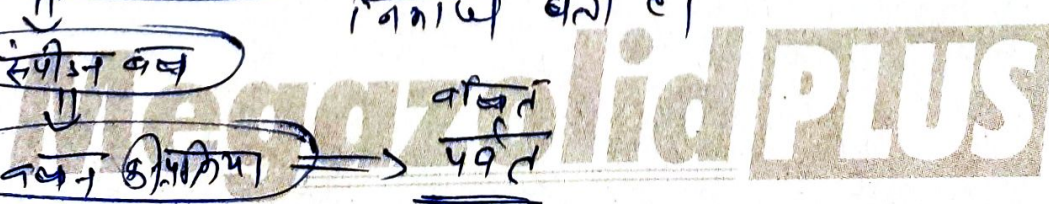 निर्माण होता है।
संपीडन बल
वलन की प्रक्रिया ⇒ वलित
पर्वत
Megazolid PLUS